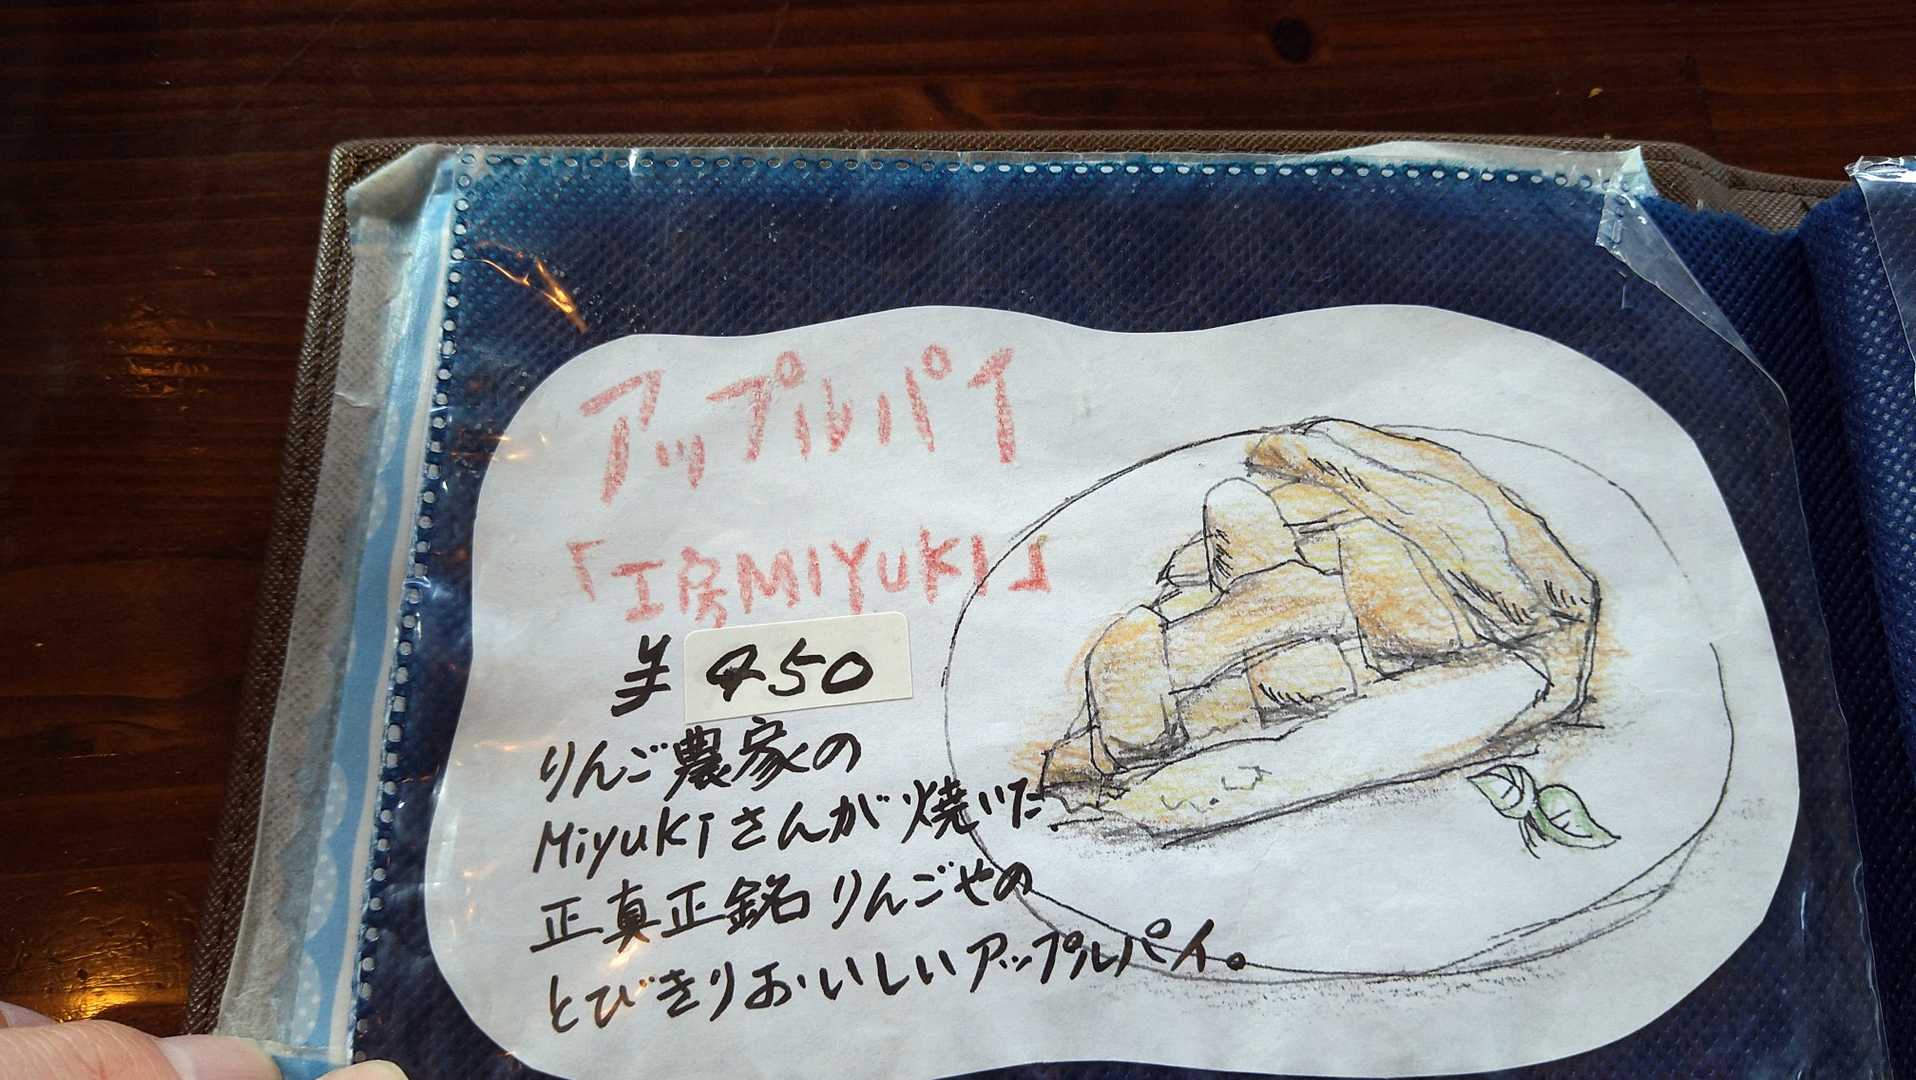 アップルパイ
「工房MIYUKI」
¥450
りんご農家の
Miyukiさんが焼いた
正真正銘りんごやの
とびきりおいしいアップルパイ。